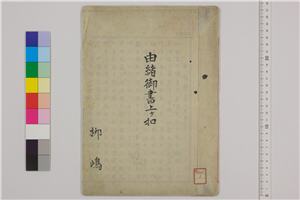 由緒御書上ケ扣
柳嶋